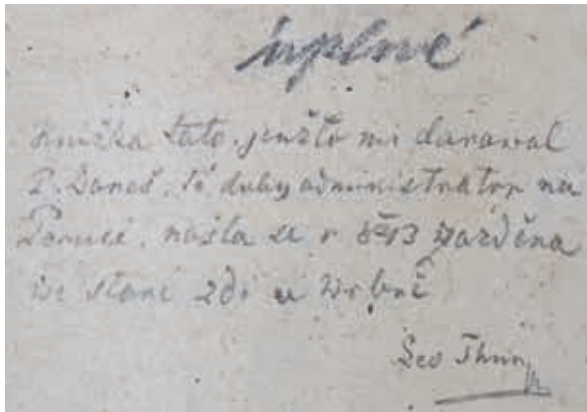 úplné
knížka tato, jenžto mi daroval
P. Daneš, té doby administrator na
Peruci, našla se r 1843 zazděna
ve staré zdi u Vrbně
Leo Thun